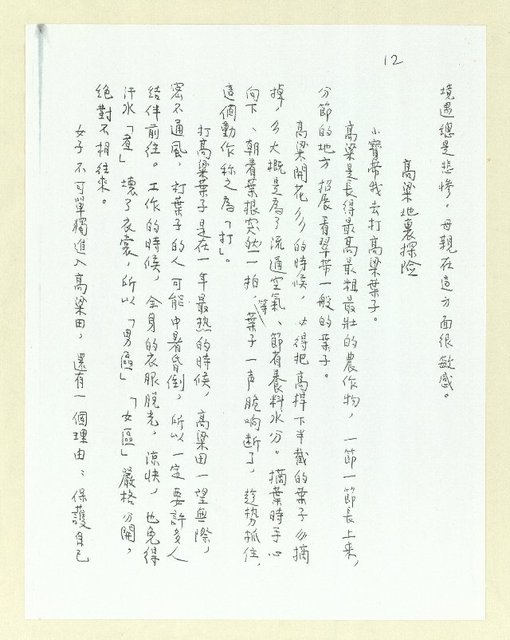 12
境遇總是悲慘，母親在這方面很敏感。
高粱地裏探險
小寶帶我去打高粱葉子。
高粱是長得最高最粗最壯的農作物，一節一節長上來，
分節的地方招展着翠帶一般的葉子。
高粱開花的時候，必得把高桿下半截的葉子摘
掉，大概是為了流通空氣、節省養料水分。摘葉時手心
向下、朝着葉根突然一拍，等葉子一声脆响断了，趁势抓住，
這個動作称之為「打」。
打高粱葉子是在一年最热的時候，高粱田一望無際，
密不通風，打葉子的人可能中暑昏倒，所以一定要許多人
结伴前往。工作的時候，全身的衣服脱光，涼快，也免得
汗水「煮」壞了衣裳，所以「男區」「女區」嚴格分開，
絕對不相往來。
女子不可單獨進入高粱田，還有一個理由：保護自己